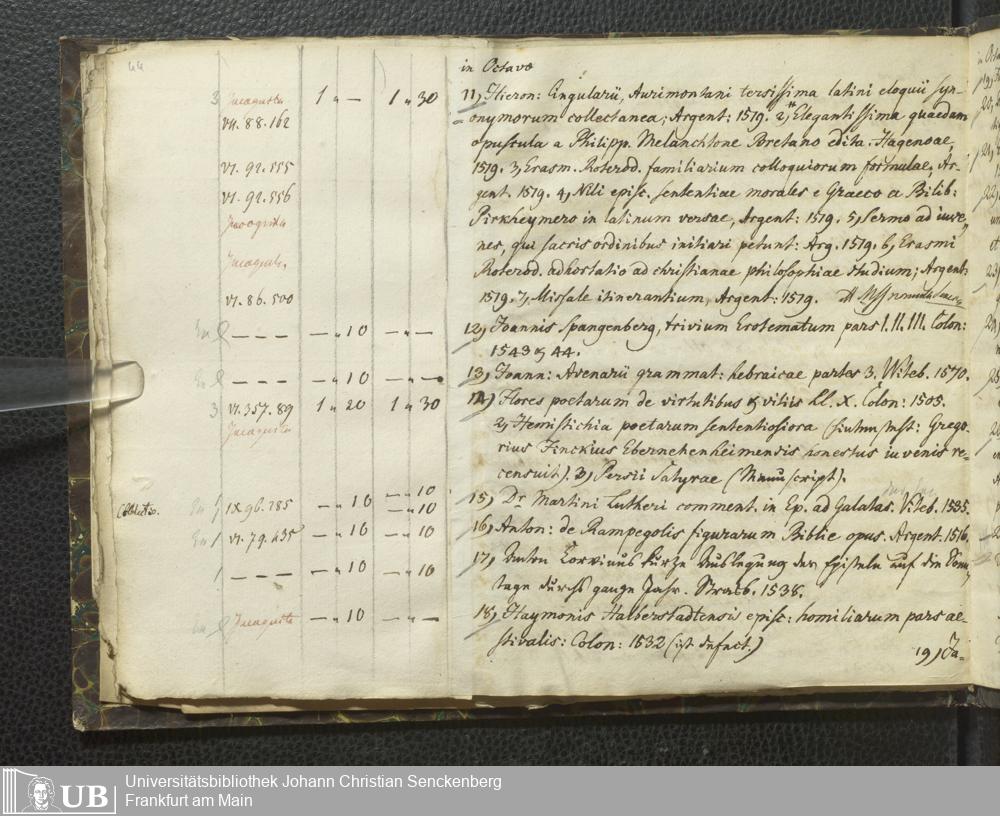 44
in Octavo
3 Incognita 1 " — 1 " 30 11, Hieron: Cingularii, Aurimontani tersissima latini eloquii syn-
VII. 88. 162 onymorum collectanea; Argent: 1519. 2, Elegantissima quaedam
opuscula a Philipp. Melanchtone Bretano edita. Hagenoae,
VI. 92. 555 1519. 3, Erasm. Roterod. familiarium colloquiorum formulae, Ar-
VI. 92. 556 gent. 1519. 4, Nili episc. sententiae morales e Graeco a Bilib:
Incognita Pirkheymero in latinum versae, Argent: 1519. 5, Sermo ad iuve
nes, qui sacris ordinibus initiari petunt: Arg. 1519. 6, Erasmi
Incognita Roterod. adhortatio ad christianae philosophiae studium; Argent:
VI. 86. 500 1519. 7, Missale itinerantium, Argent: 1519.
— — — — " 10 — " — 12, Joannis Spangenberg, trivium Erotematum pars I. II. III. Colon:
1543 & 44.
— — — — " 10 — " — 13, Joann: Avenarii grammat: hebraicae partes 3. Witeb. 1570.
3 VI. 357. 89 1 " 20 1 " 30 14, Flores poetarum de virtutibus & vitiis LL. X. Colon: 1505.
Incognita 2, Hemistichia poetarum sententiosiora (: Grego-
rius Finckius Ebernehenheimensis honestus iuvenis re-
censuit). 3, Persii Satyrae (Manuscript).
Collectio. IX. 96. 285 — " 10 — " 10 — " 10 15, Dr. Martini Lutheri comment. in Ep. ad Galatas. Viteb. 1535.
VI. 79. 435 — " 10 — " 10 16, Anton: de Rampegolis figurarum Biblie opus. Argent. 1516.
1 — — — — " 10 — " 10 17, Anton Corvinus kurze Auslegung der Episteln auf die Sonn
tage durchs ganze Jahr. Strasb. 1538.
Incognita — " 10 — " — 18, Haymonis Halberstadtensis episc: homiliarum pars ae-
stivalis: Colon: 1532 (ist defect.)
19, Ja-
UB Universitätsbibliothek Johann Christian Senckenberg
Frankfurt am Main